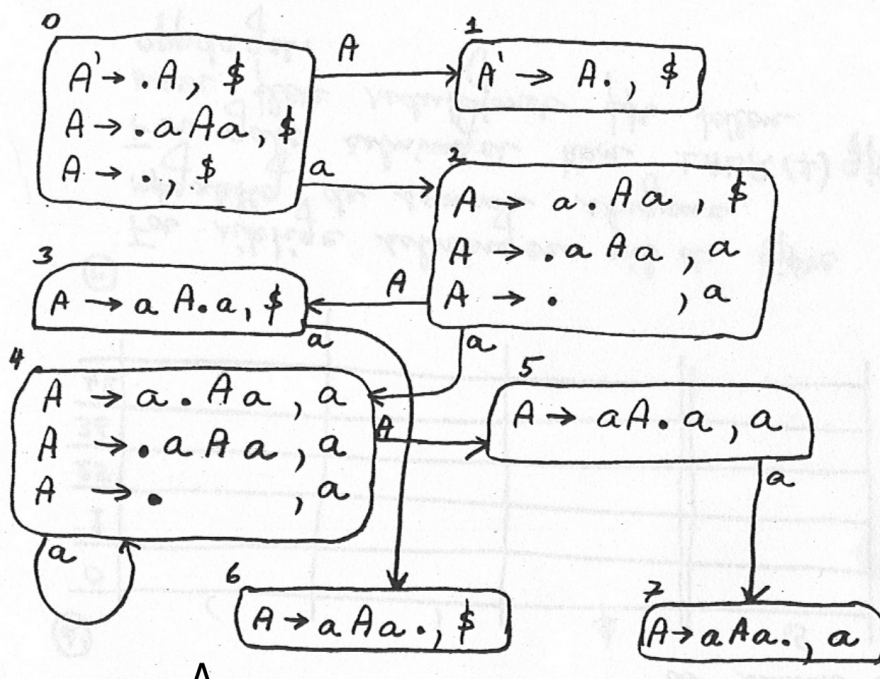 0
A' → .A, $
A → .aAa, $
A → ., $
A
1
A' → A., $
a
2
A → a.Aa, $
A → .aAa, a
A → . , a
3
A → aA.a, $
A
a
a
4
A → a.Aa, a
A → .aAa, a
A → . , a
a
A
5
A → aA.a, a
a
6
A → aAa., $
7
A → aAa., a
A